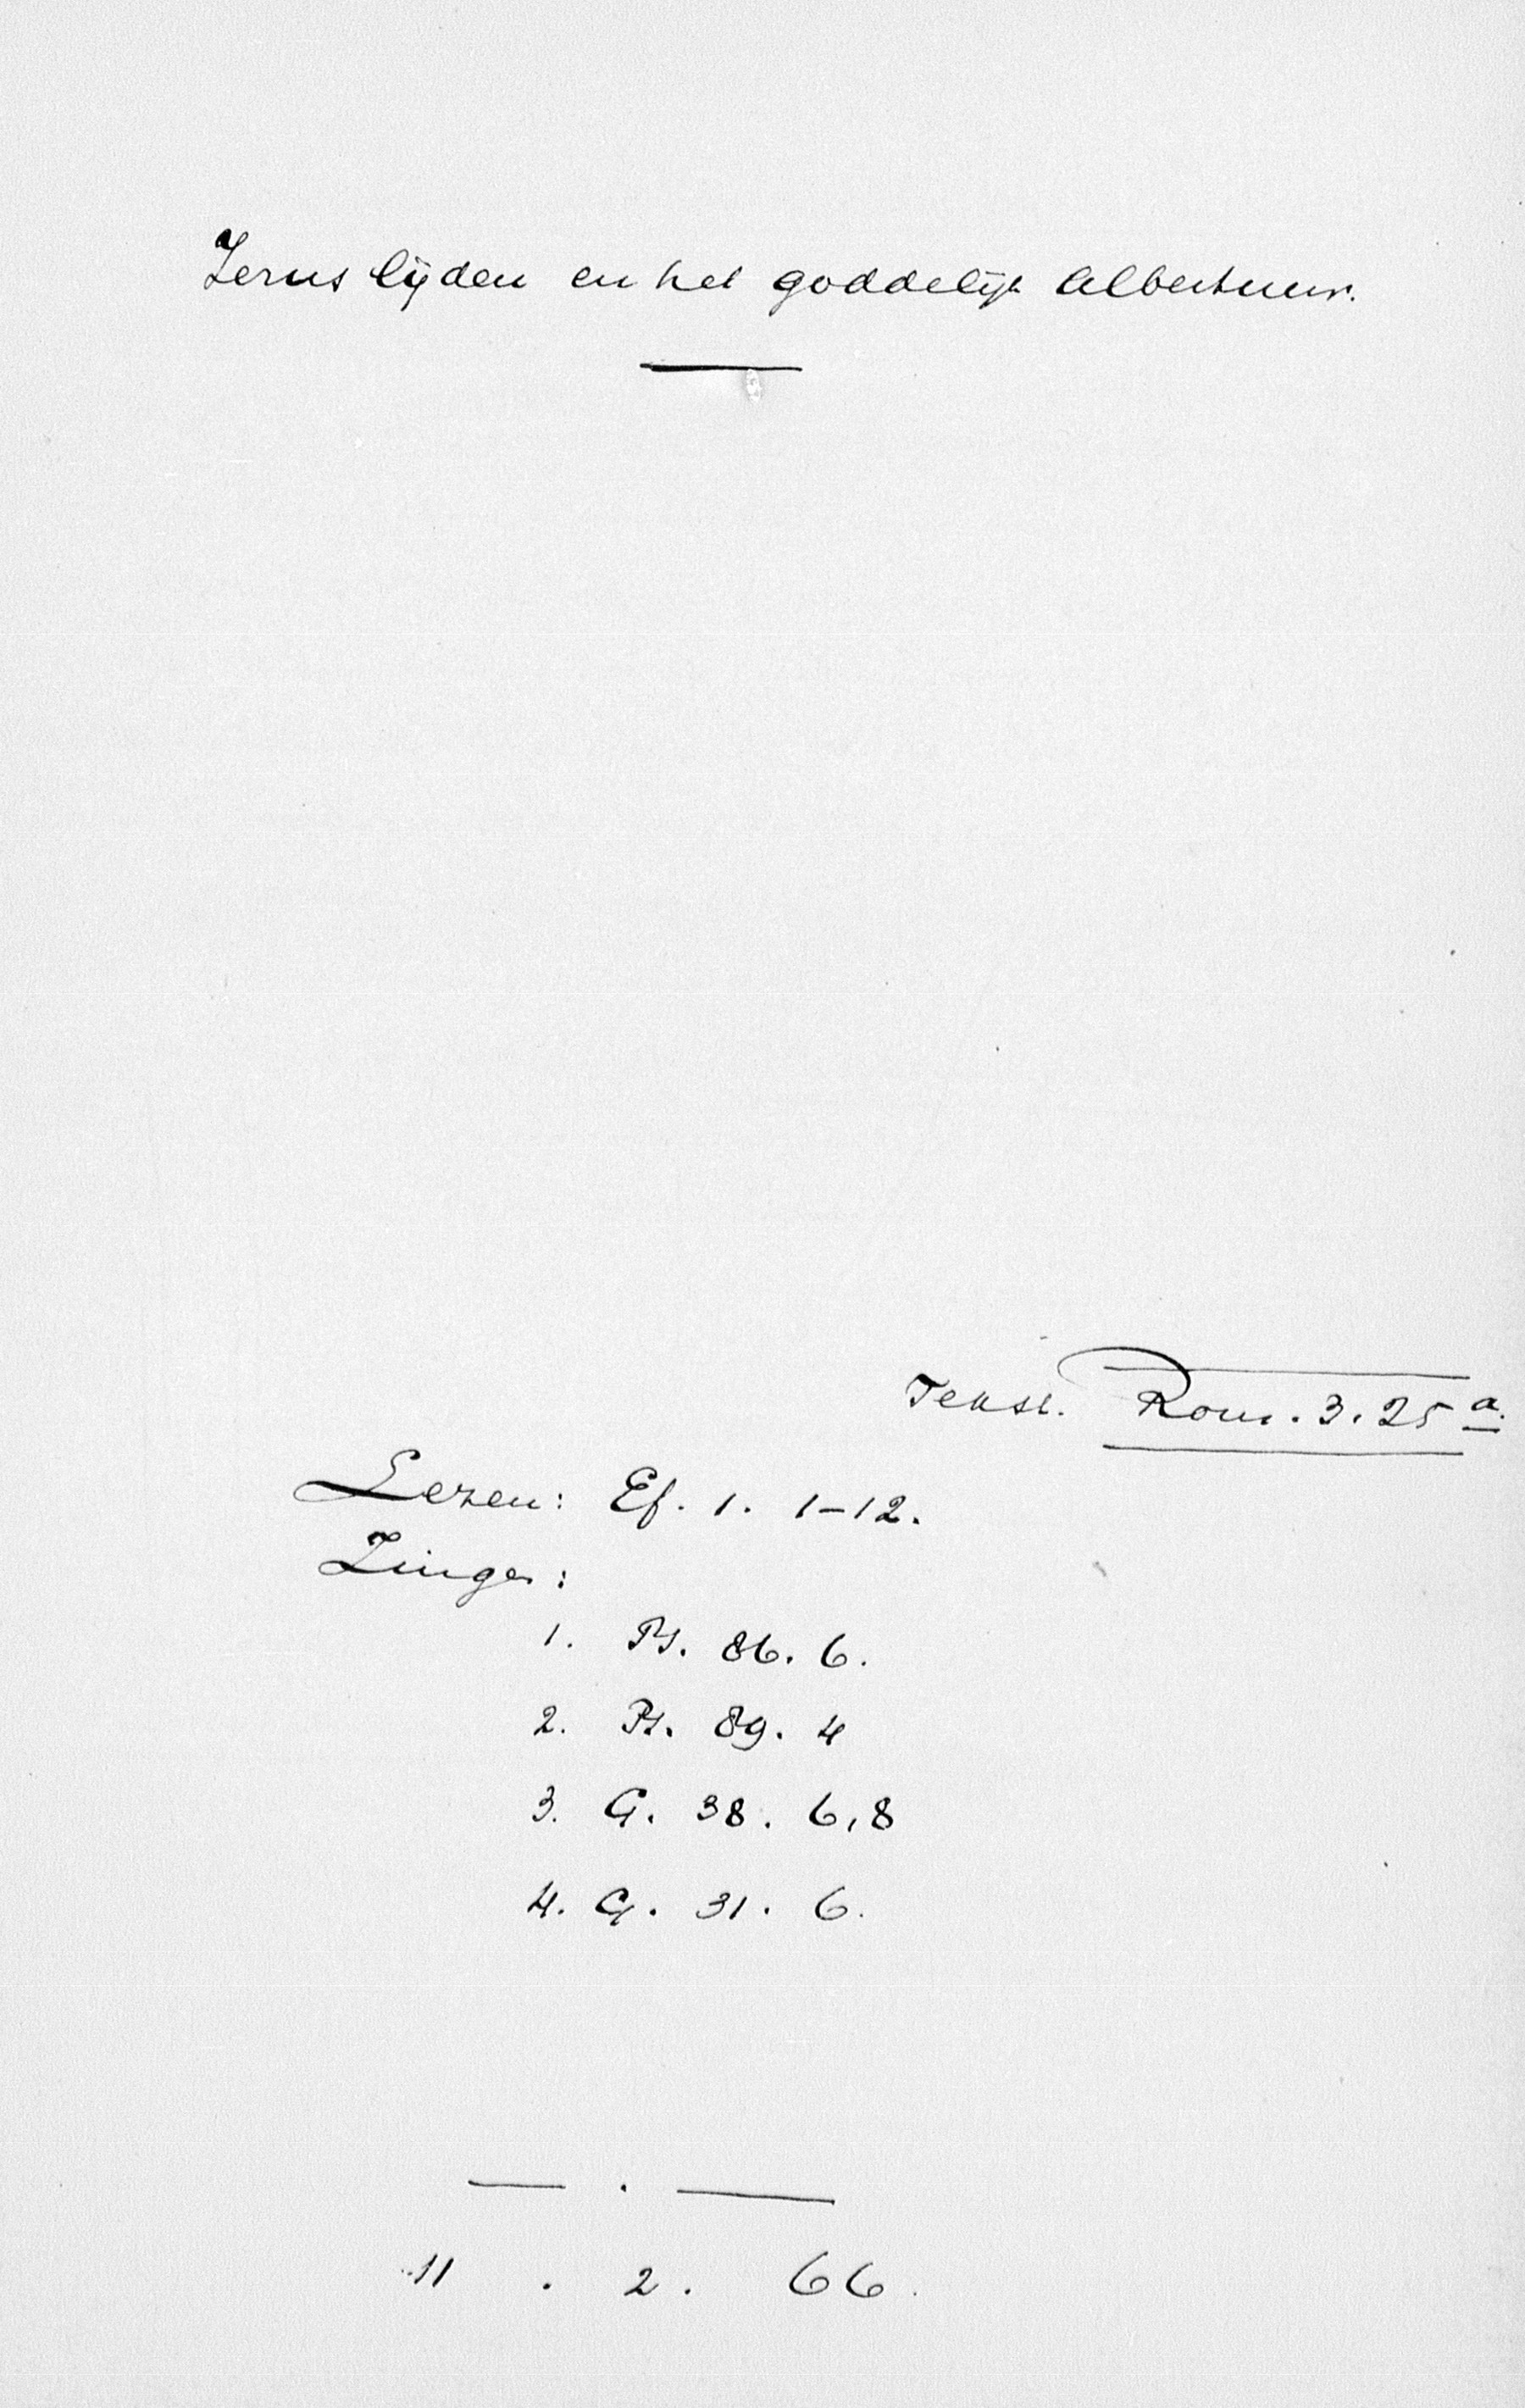 Jezus lijden en het goddelijk albestuur.
Tekst. Rom. 3. 25 a.
Lezen: Ef. 1. 1-12.
Zingen:
1. Ps. 86. 6.
2. Ps. 89. 4
3. G. 38. 6,8
4. G. 31. 6.
11 . 2 . 66.